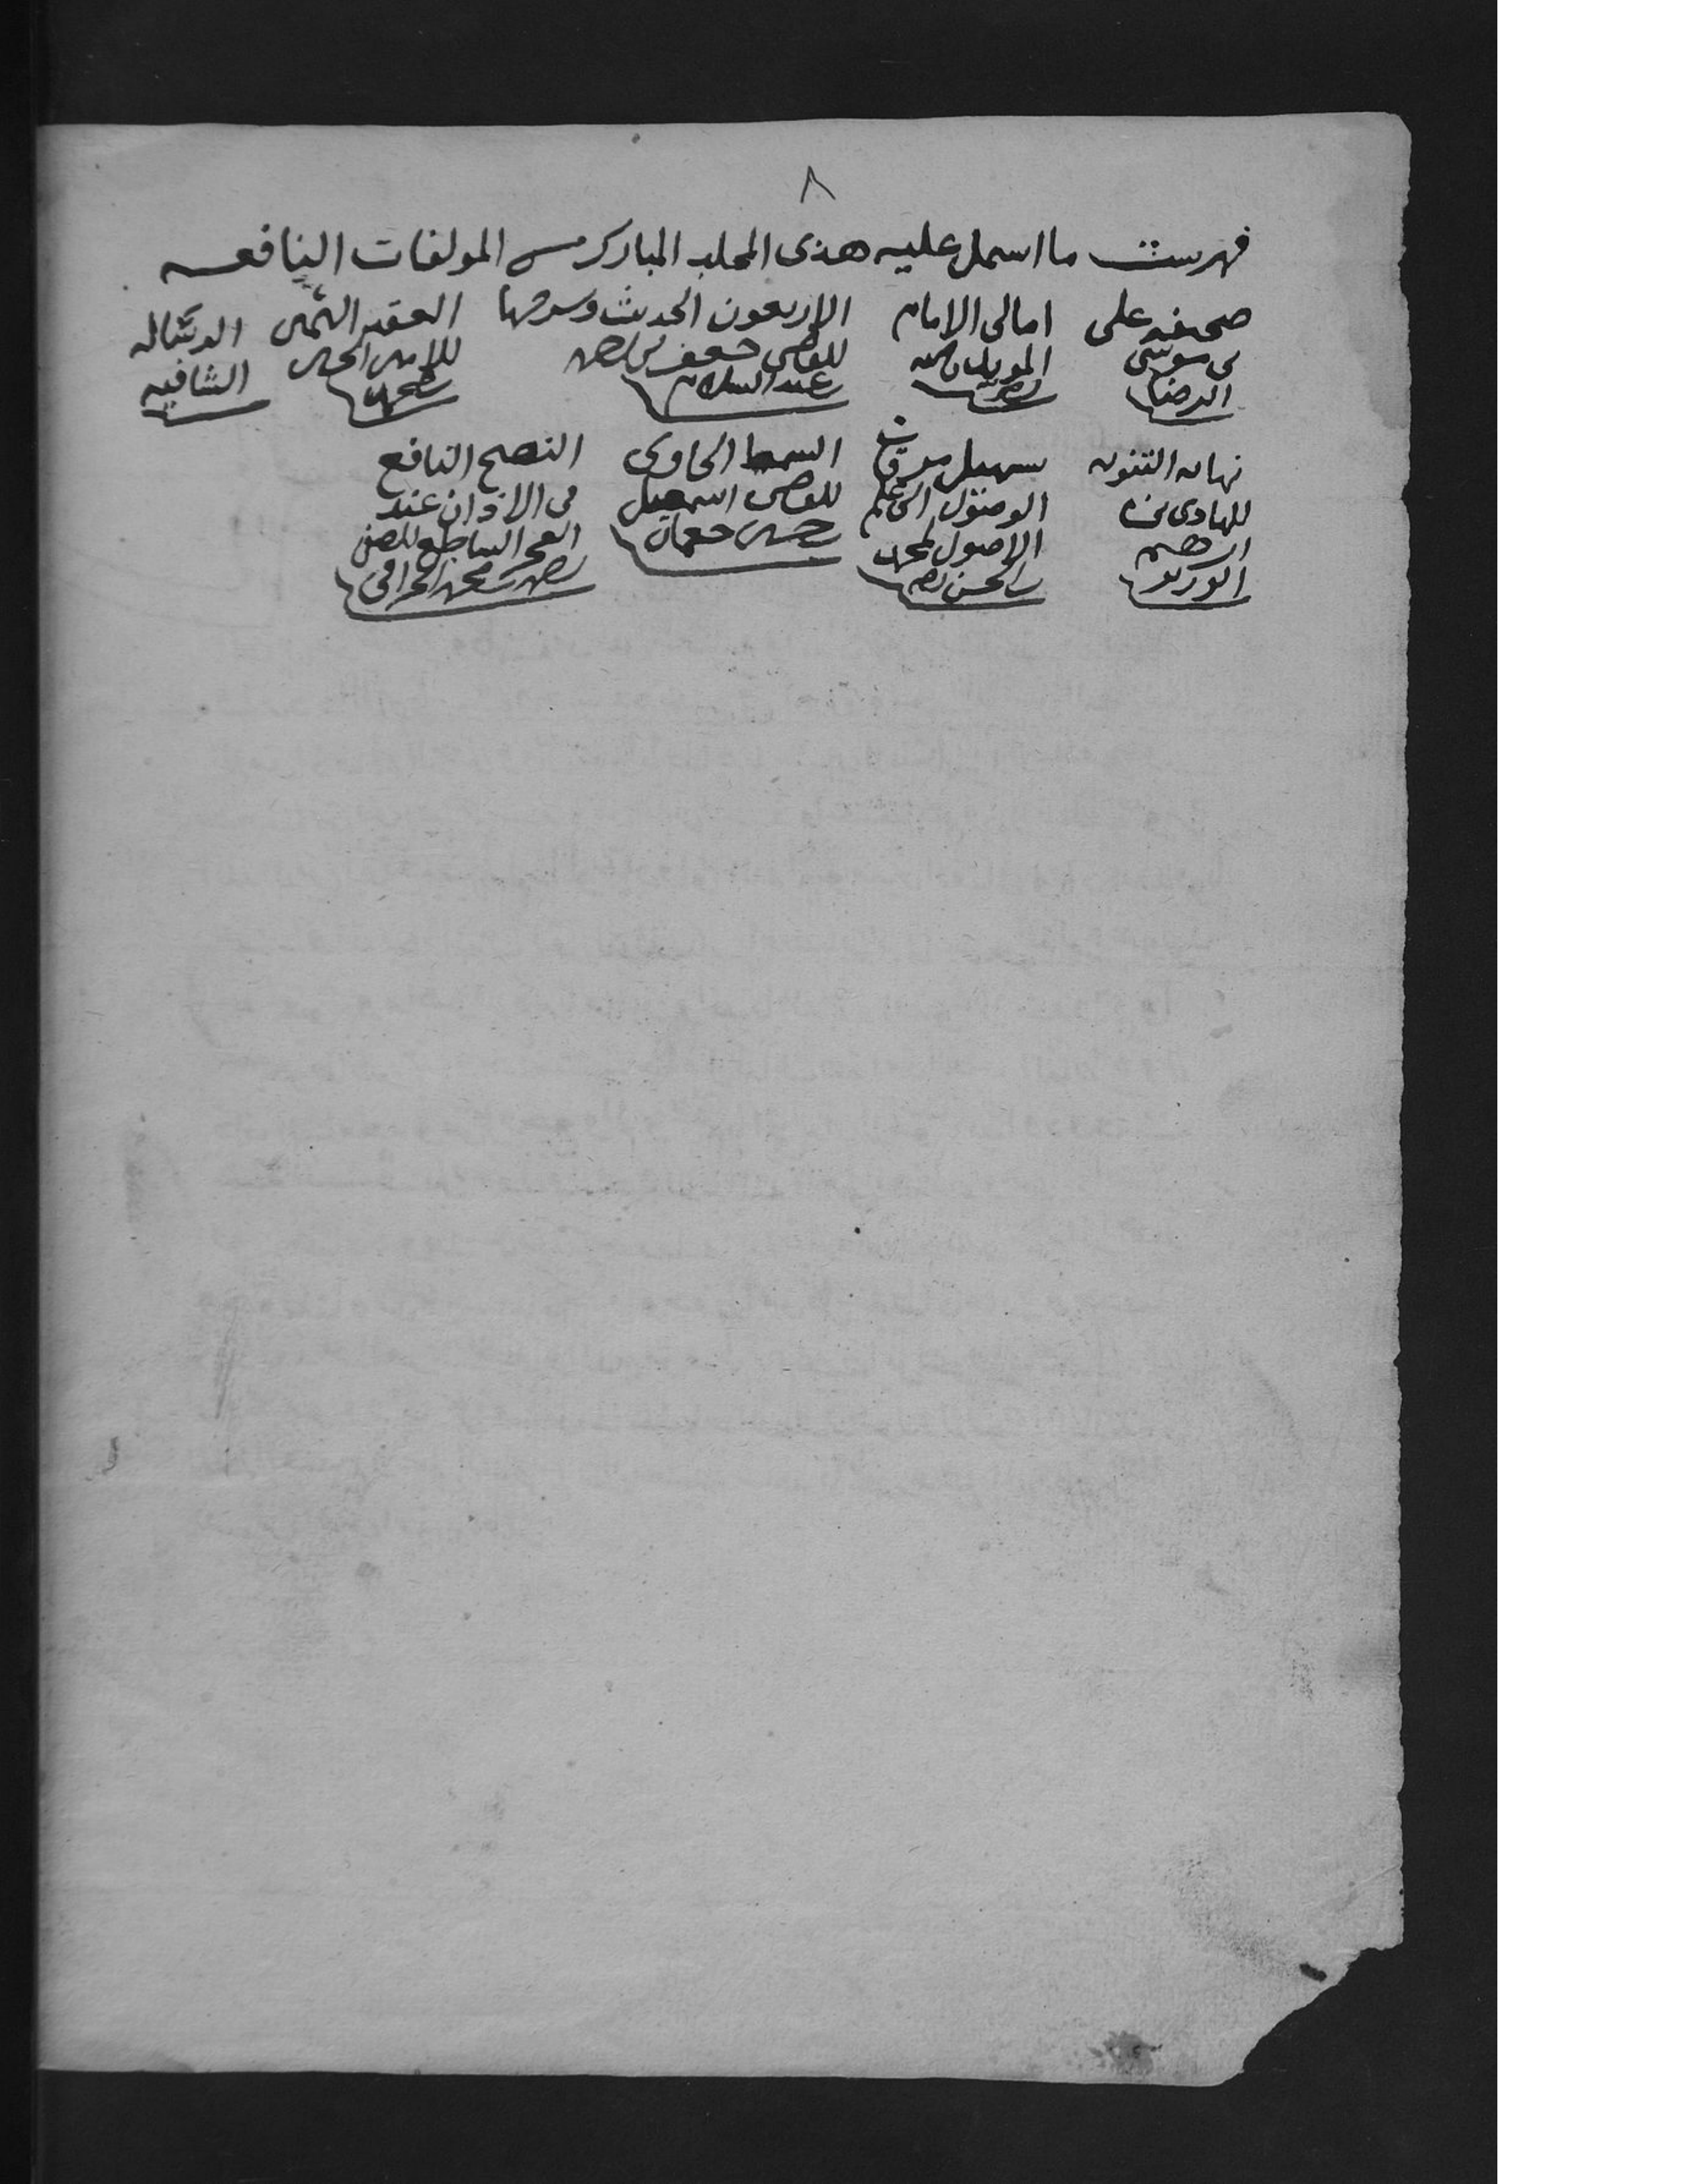 ٨
فهرست ما اسمل عليه هذى المجلد المبارك من المولفات النافعه
صحيفه على
بن موسى
الرضا
امالى الامام
المويد بالله
الاربعون الحديث وسرحها
للقاضى جعفر بن احمد
عبد السلام
العقد الثمين
للامير الحسين
بن محمد
الرساله
الشافيه
نهايه التنويه
للهادى بن
ابرهيم
الوزير
تسهيل مرقات
الوصول الى علم
الاصول لمحمد
بن الحسن
السمط الحاوى
للقاضى اسمعيل
حسين جغمان
النصح النافع
فى الاذان عند
الفجر الساطع للصفى
احمد بن محمد الجرافى